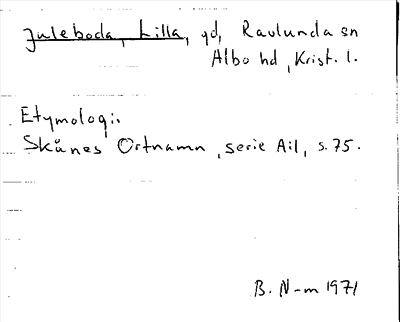 Juleboda, Lilla, gd, Ravlunda sn
Albo hd, Krist. l.
Etymologi:
Skånes Ortnamn, serie A:1, s. 75.
B. N-m 1971